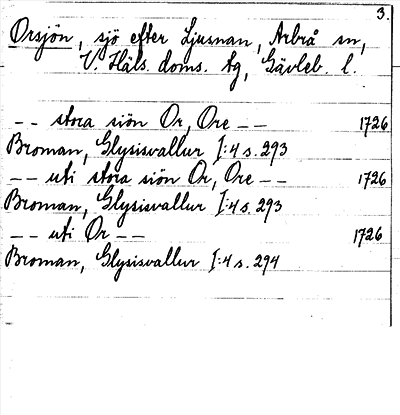 3.
Orsjön, sjö efter Ljusnan, Arbrå sn,
V. Häls. doms. tg, Gävleb. l.
-- stora siön Or, Ore -- 1726
Broman, Glysisvallur I:4 s. 293
-- uti stora siön Or, Ore -- 1726
Broman, Glysisvallur I:4 s. 293
-- uti Or -- 1726
Broman, Glysisvallur I:4 s. 294